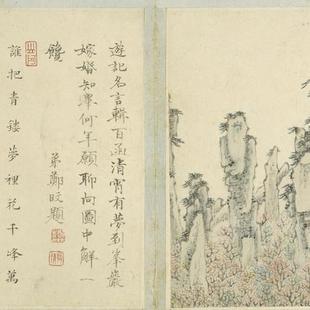 遊記名言輯百函清宵有夢到峯巖
嫁婚知畢何年願聊向圖中解一
饞
弟鄭旼題
誰把青鏤夢裡花千峰萬